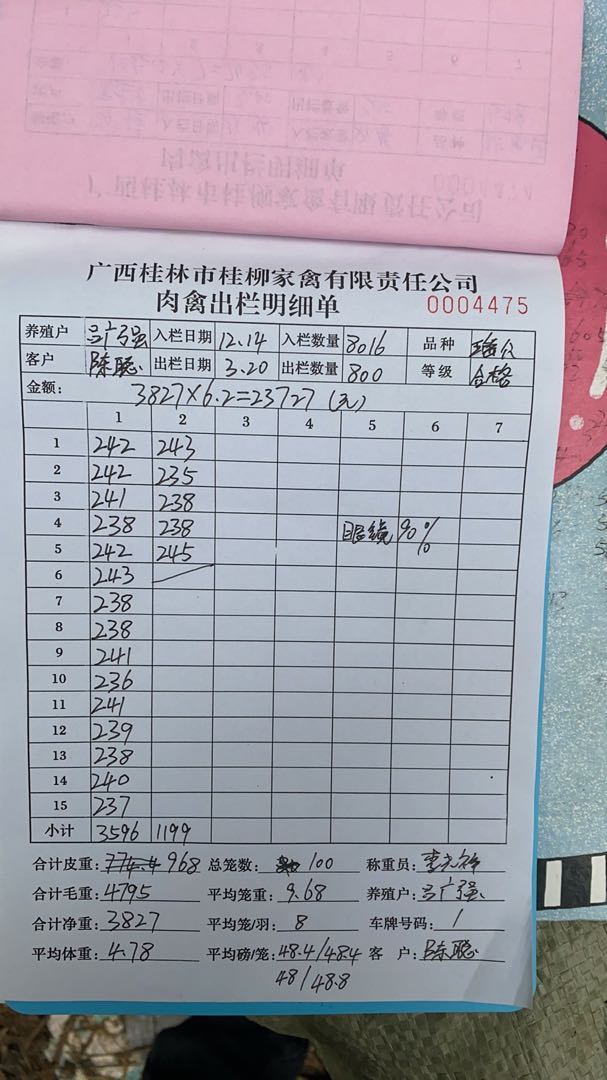 广西桂林市桂柳家禽有限责任公司
肉禽出栏明细单 0004475
养殖户 吕广强 入栏日期 12.14 入栏数量 8016 品种
客户 陈聪 出栏日期 3.20 出栏数量 800 等级 合格
金额: 3827×6.2=23727(元)
1 2 3 4 5 6 7
1 242 243
2 242 235
3 241 238
4 238 238 眼绩 90%
5 242 245
6 243
7 238
8 238
9 241
10 236
11 241
12 239
13 238
14 240
15 237
小计 3596 1199
合计皮重: 774.4 968 总笼数: 100 称重员:
合计毛重: 4795 平均笼重: 9.68 养殖户: 吕广强
合计净重: 3827 平均笼/羽: 8 车牌号码: 1
平均体重: 4.78 平均磅/笼: 48.4/48.4 客户: 陈聪
48/48.8